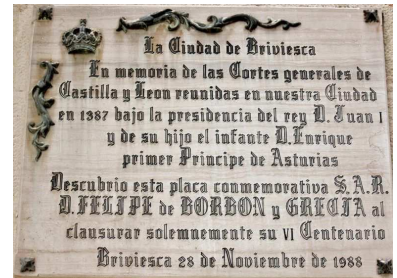 La Ciudad de Briviesca
En memoria de las Cortes generales de
Castilla y Leon reunidas en nuestra Ciudad
en 1387 bajo la presidencia del rey D. Juan I
y de su hijo el infante D. Enrique
primer Principe de Asturias
Descubrio esta placa conmemorativa S. A. R.
D. FELIPE de BORBON y GRECIA al
clausurar solemnemente su VI Centenario
Briviesca 28 de Noviembre de 1988